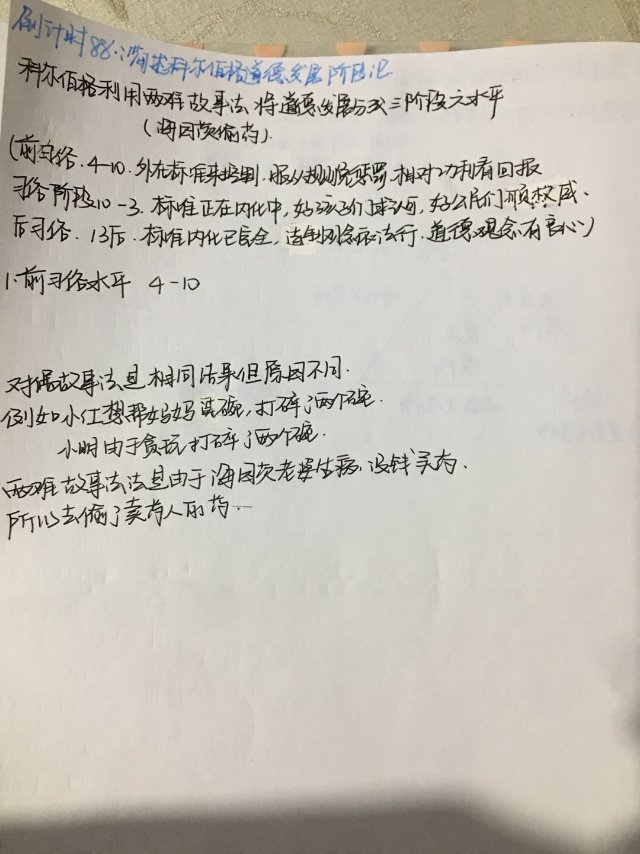 倒计时88.简述科尔伯格道德发展阶段论
科尔伯格利用两难故事法将道德发展分成三阶段六水平
(海因茨偷药)
(前习俗.4-10.外在标准来控制.服从规则免惩罚.相对功利看回报
习俗阶段10-13.标准正在内化中,好孩子们求认可,好公民们顺权威.
后习俗.13后.标准内化已完全,法制观念依法行.道德观念有良心)
1.前习俗水平 4-10
对偶故事法是相同结果但原因不同.
例如小红想帮妈妈洗碗,打碎了两个碗.
小明由于贪玩打碎了两个碗.
两难故事法法是由于海因茨老婆生病,没钱买药.
所以去偷了卖药人的药..